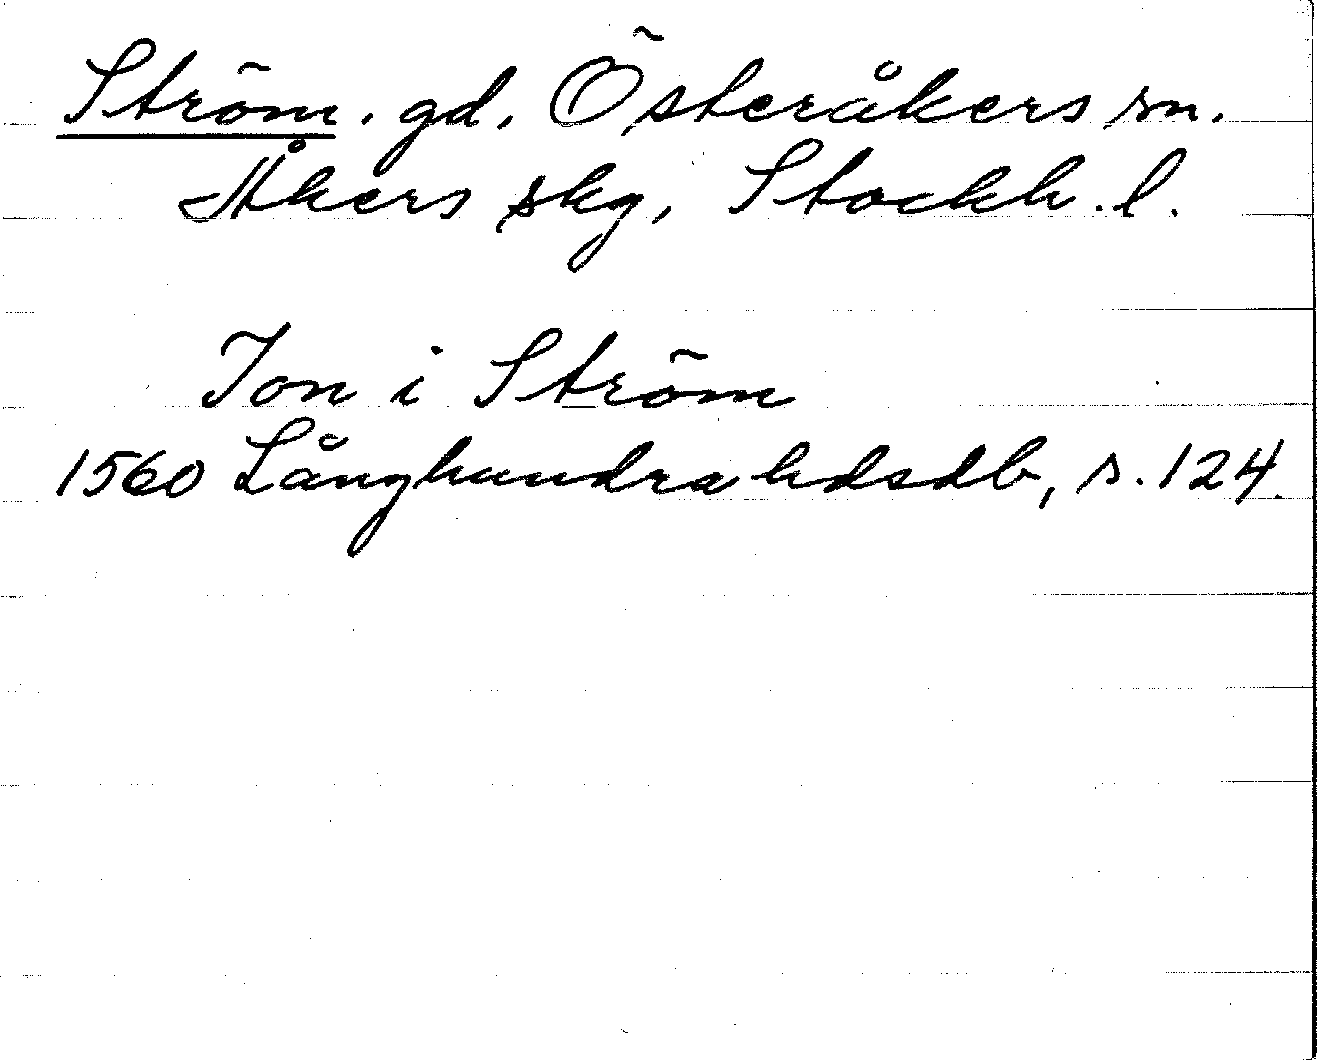 Ström. gd, Österåkers sn.
Åkers skg, Stockh. l.
Jon i Ström
1560 Långhundra hdsdb, s. 124.